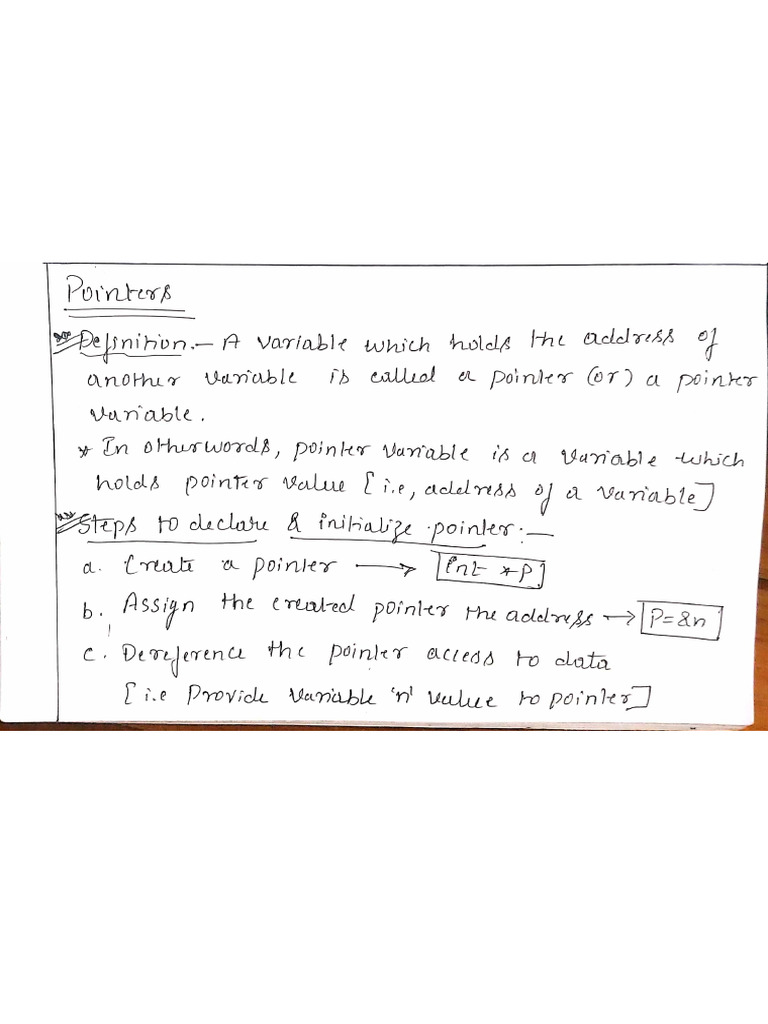 Pointers
** Definition:- A variable which holds the address of
another variable is called a pointer (or) a pointer
variable.
* In otherwords, pointer variable is a variable which
holds pointer value [i.e, address of a variable]
** Steps to declare & initialize pointer:-
a. Create a pointer → int *p
b. Assign the created pointer the address → P=&n
c. Dereference the pointer access to data
[i.e Provide variable 'n' value to pointer]